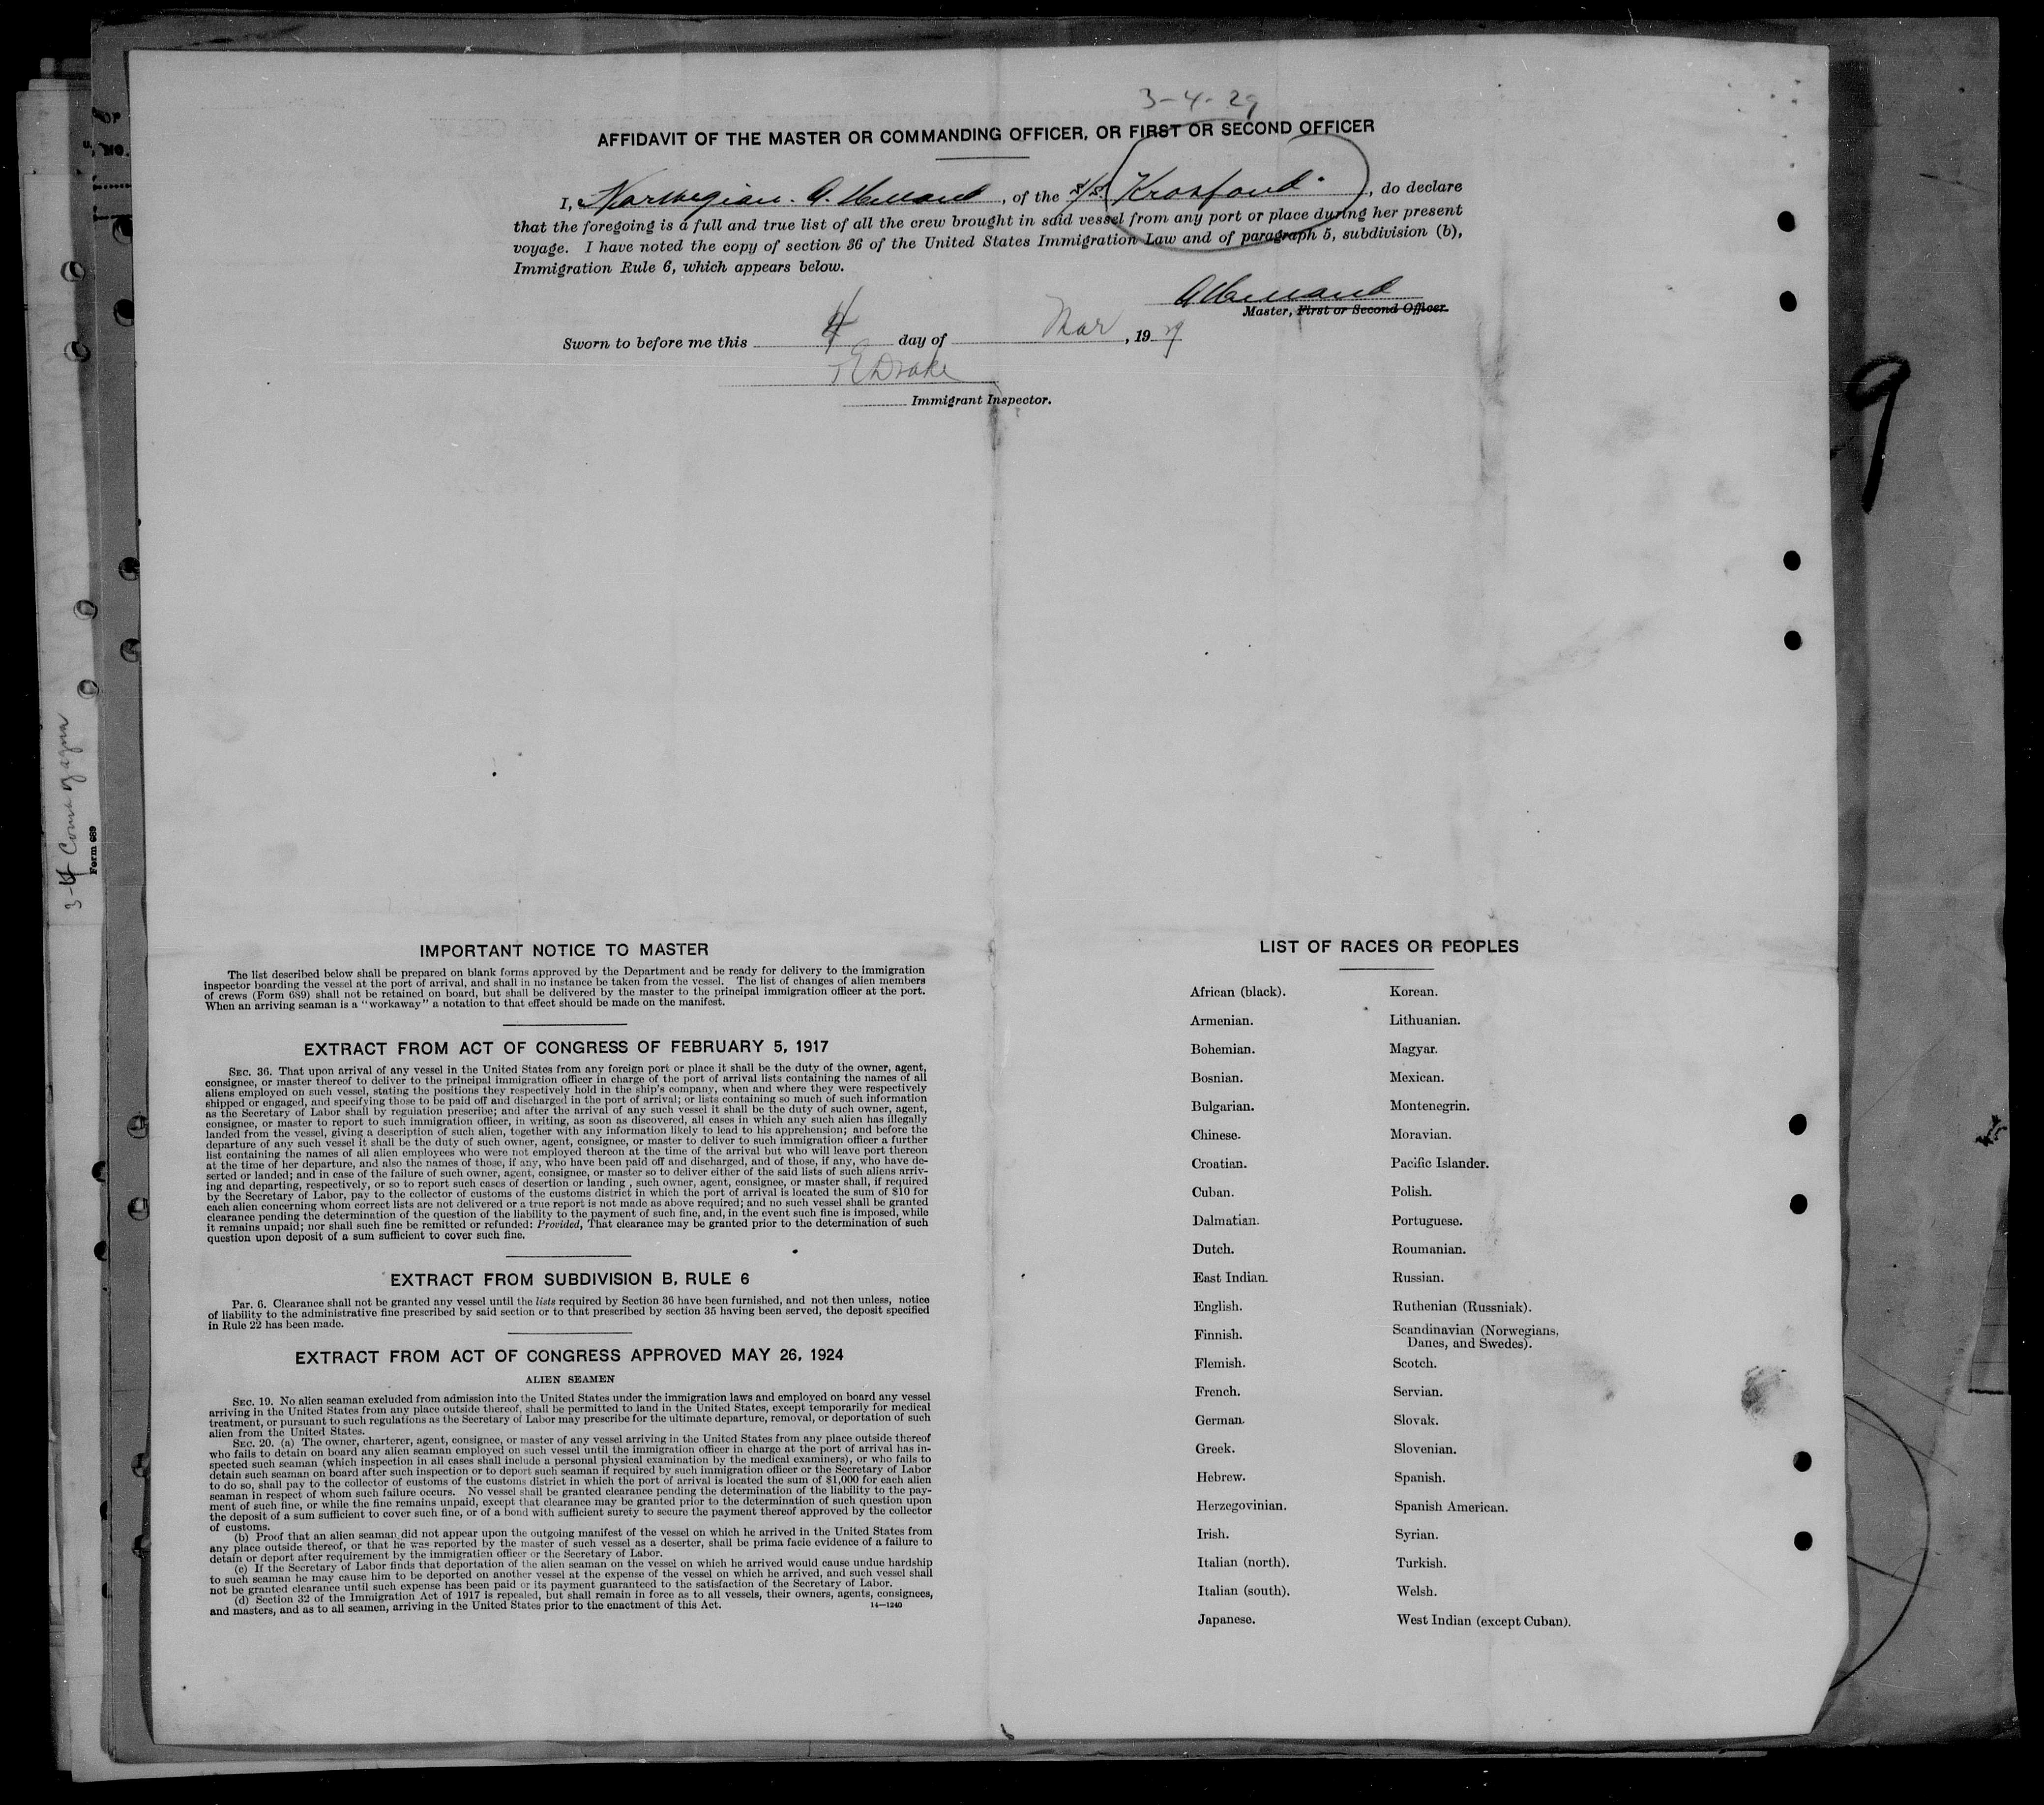 3-4-29
AFFIDAVIT OF THE MASTER OR COMMANDING OFFICER, OR FIRST OR SECOND OFFICER
I, Norwegian. A. , of the s/s. Krosfond , do declare
that the foregoing is a full and true list of all the crew brought in said vessel from any port or place during her present
voyage. I have noted the copy of section 36 of the United States Immigration Law and of paragraph 5, subdivision (b),
Immigration Rule 6, which appears below.
Master, First or Second Officer.
Sworn to before me this 4 day of Mar , 1929
Drake
Immigrant Inspector.
9
3-4 Comayagua
Form 689
IMPORTANT NOTICE TO MASTER
The list described below shall be prepared on blank forms approved by the Department and be ready for delivery to the immigration
inspector boarding the vessel at the port of arrival, and shall in no instance be taken from the vessel. The list of changes of alien members
of crews (Form 689) shall not be retained on board, but shall be delivered by the master to the principal immigration officer at the port.
When an arriving seaman is a "workaway" a notation to that effect should be made on the manifest.
EXTRACT FROM ACT OF CONGRESS OF FEBRUARY 5, 1917
SEC. 36. That upon arrival of any vessel in the United States from any foreign port or place it shall be the duty of the owner, agent,
consignee, or master thereof to deliver to the principal immigration officer in charge of the port of arrival lists containing the names of all
aliens employed on such vessel, stating the positions they respectively hold in the ship's company, when and where they were respectively
shipped or engaged, and specifying those to be paid off and discharged in the port of arrival; or lists containing so much of such information
as the Secretary of Labor shall by regulation prescribe; and after the arrival of any such vessel it shall be the duty of such owner, agent,
consignee, or master to report to such immigration officer, in writing, as soon as discovered, all cases in which any such alien has illegally
landed from the vessel, giving a description of such alien, together with any information likely to lead to his apprehension; and before the
departure of any such vessel it shall be the duty of such owner, agent, consignee, or master to deliver to such immigration officer a further
list containing the names of all alien employees who were not employed thereon at the time of the arrival but who will leave port thereon
at the time of her departure, and also the names of those, if any, who have been paid off and discharged, and of those, if any, who have de-
serted or landed; and in case of the failure of such owner, agent, consignee, or master so to deliver either of the said lists of such aliens arriv-
ing and departing, respectively, or so to report such cases of desertion or landing , such owner, agent, consignee, or master shall, if required
by the Secretary of Labor, pay to the collector of customs of the customs district in which the port of arrival is located the sum of $10 for
each alien concerning whom correct lists are not delivered or a true report is not made as above required; and no such vessel shall be granted
clearance pending the determination of the question of the liability to the payment of such fine, and, in the event such fine is imposed, while
it remains unpaid; nor shall such fine be remitted or refunded: Provided, That clearance may be granted prior to the determination of such
question upon deposit of a sum sufficient to cover such fine.
EXTRACT FROM SUBDIVISION B, RULE 6
Par. 6. Clearance shall not be granted any vessel until the lists required by Section 36 have been furnished, and not then unless, notice
of liability to the administrative fine prescribed by said section or to that prescribed by section 35 having been served, the deposit specified
in Rule 22 has been made.
EXTRACT FROM ACT OF CONGRESS APPROVED MAY 26, 1924
ALIEN SEAMEN
SEC. 19. No alien seaman excluded from admission into the United States under the immigration laws and employed on board any vessel
arriving in the United States from any place outside thereof, shall be permitted to land in the United States, except temporarily for medical
treatment, or pursuant to such regulations as the Secretary of Labor may prescribe for the ultimate departure, removal, or deportation of such
alien from the United States.
SEC. 20. (a) The owner, charterer, agent, consignee, or master of any vessel arriving in the United States from any place outside thereof
who fails to detain on board any alien seaman employed on such vessel until the immigration officer in charge at the port of arrival has in-
spected such seaman (which inspection in all cases shall include a personal physical examination by the medical examiners), or who fails to
detain such seaman on board after such inspection or to deport such seaman if required by such immigration officer or the Secretary of Labor
to do so, shall pay to the collector of customs of the customs district in which the port of arrival is located the sum of $1,000 for each alien
seaman in respect of whom such failure occurs. No vessel shall be granted clearance pending the determination of the liability to the pay-
ment of such fine, or while the fine remains unpaid, except that clearance may be granted prior to the determination of such question upon
the deposit of a sum sufficient to cover such fine, or of a bond with sufficient surety to secure the payment thereof approved by the collector
of customs.
(b) Proof that an alien seaman did not appear upon the outgoing manifest of the vessel on which he arrived in the United States from
any place outside thereof, or that he was reported by the master of such vessel as a deserter, shall be prima facie evidence of a failure to
detain or deport after requirement by the immigration officer or the Secretary of Labor.
(c) If the Secretary of Labor finds that deportation of the alien seaman on the vessel on which he arrived would cause undue hardship
to such seaman he may cause him to be deported on another vessel at the expense of the vessel on which he arrived, and such vessel shall
not be granted clearance until such expense has been paid or its payment guaranteed to the satisfaction of the Secretary of Labor.
(d) Section 32 of the Immigration Act of 1917 is repealed, but shall remain in force as to all vessels, their owners, agents, consignees,
and masters, and as to all seamen, arriving in the United States prior to the enactment of this Act.
14—1240
LIST OF RACES OR PEOPLES
African (black). Korean.
Armenian. Lithuanian.
Bohemian. Magyar.
Bosnian. Mexican.
Bulgarian. Montenegrin.
Chinese. Moravian.
Croatian. Pacific Islander.
Cuban. Polish.
Dalmatian. Portuguese.
Dutch. Roumanian.
East Indian. Russian.
English. Ruthenian (Russniak).
Finnish. Scandinavian (Norwegians,
Danes, and Swedes).
Flemish. Scotch.
French. Servian.
German. Slovak.
Greek. Slovenian.
Hebrew. Spanish.
Herzegovinian. Spanish American.
Irish. Syrian.
Italian (north). Turkish.
Italian (south). Welsh.
Japanese. West Indian (except Cuban).